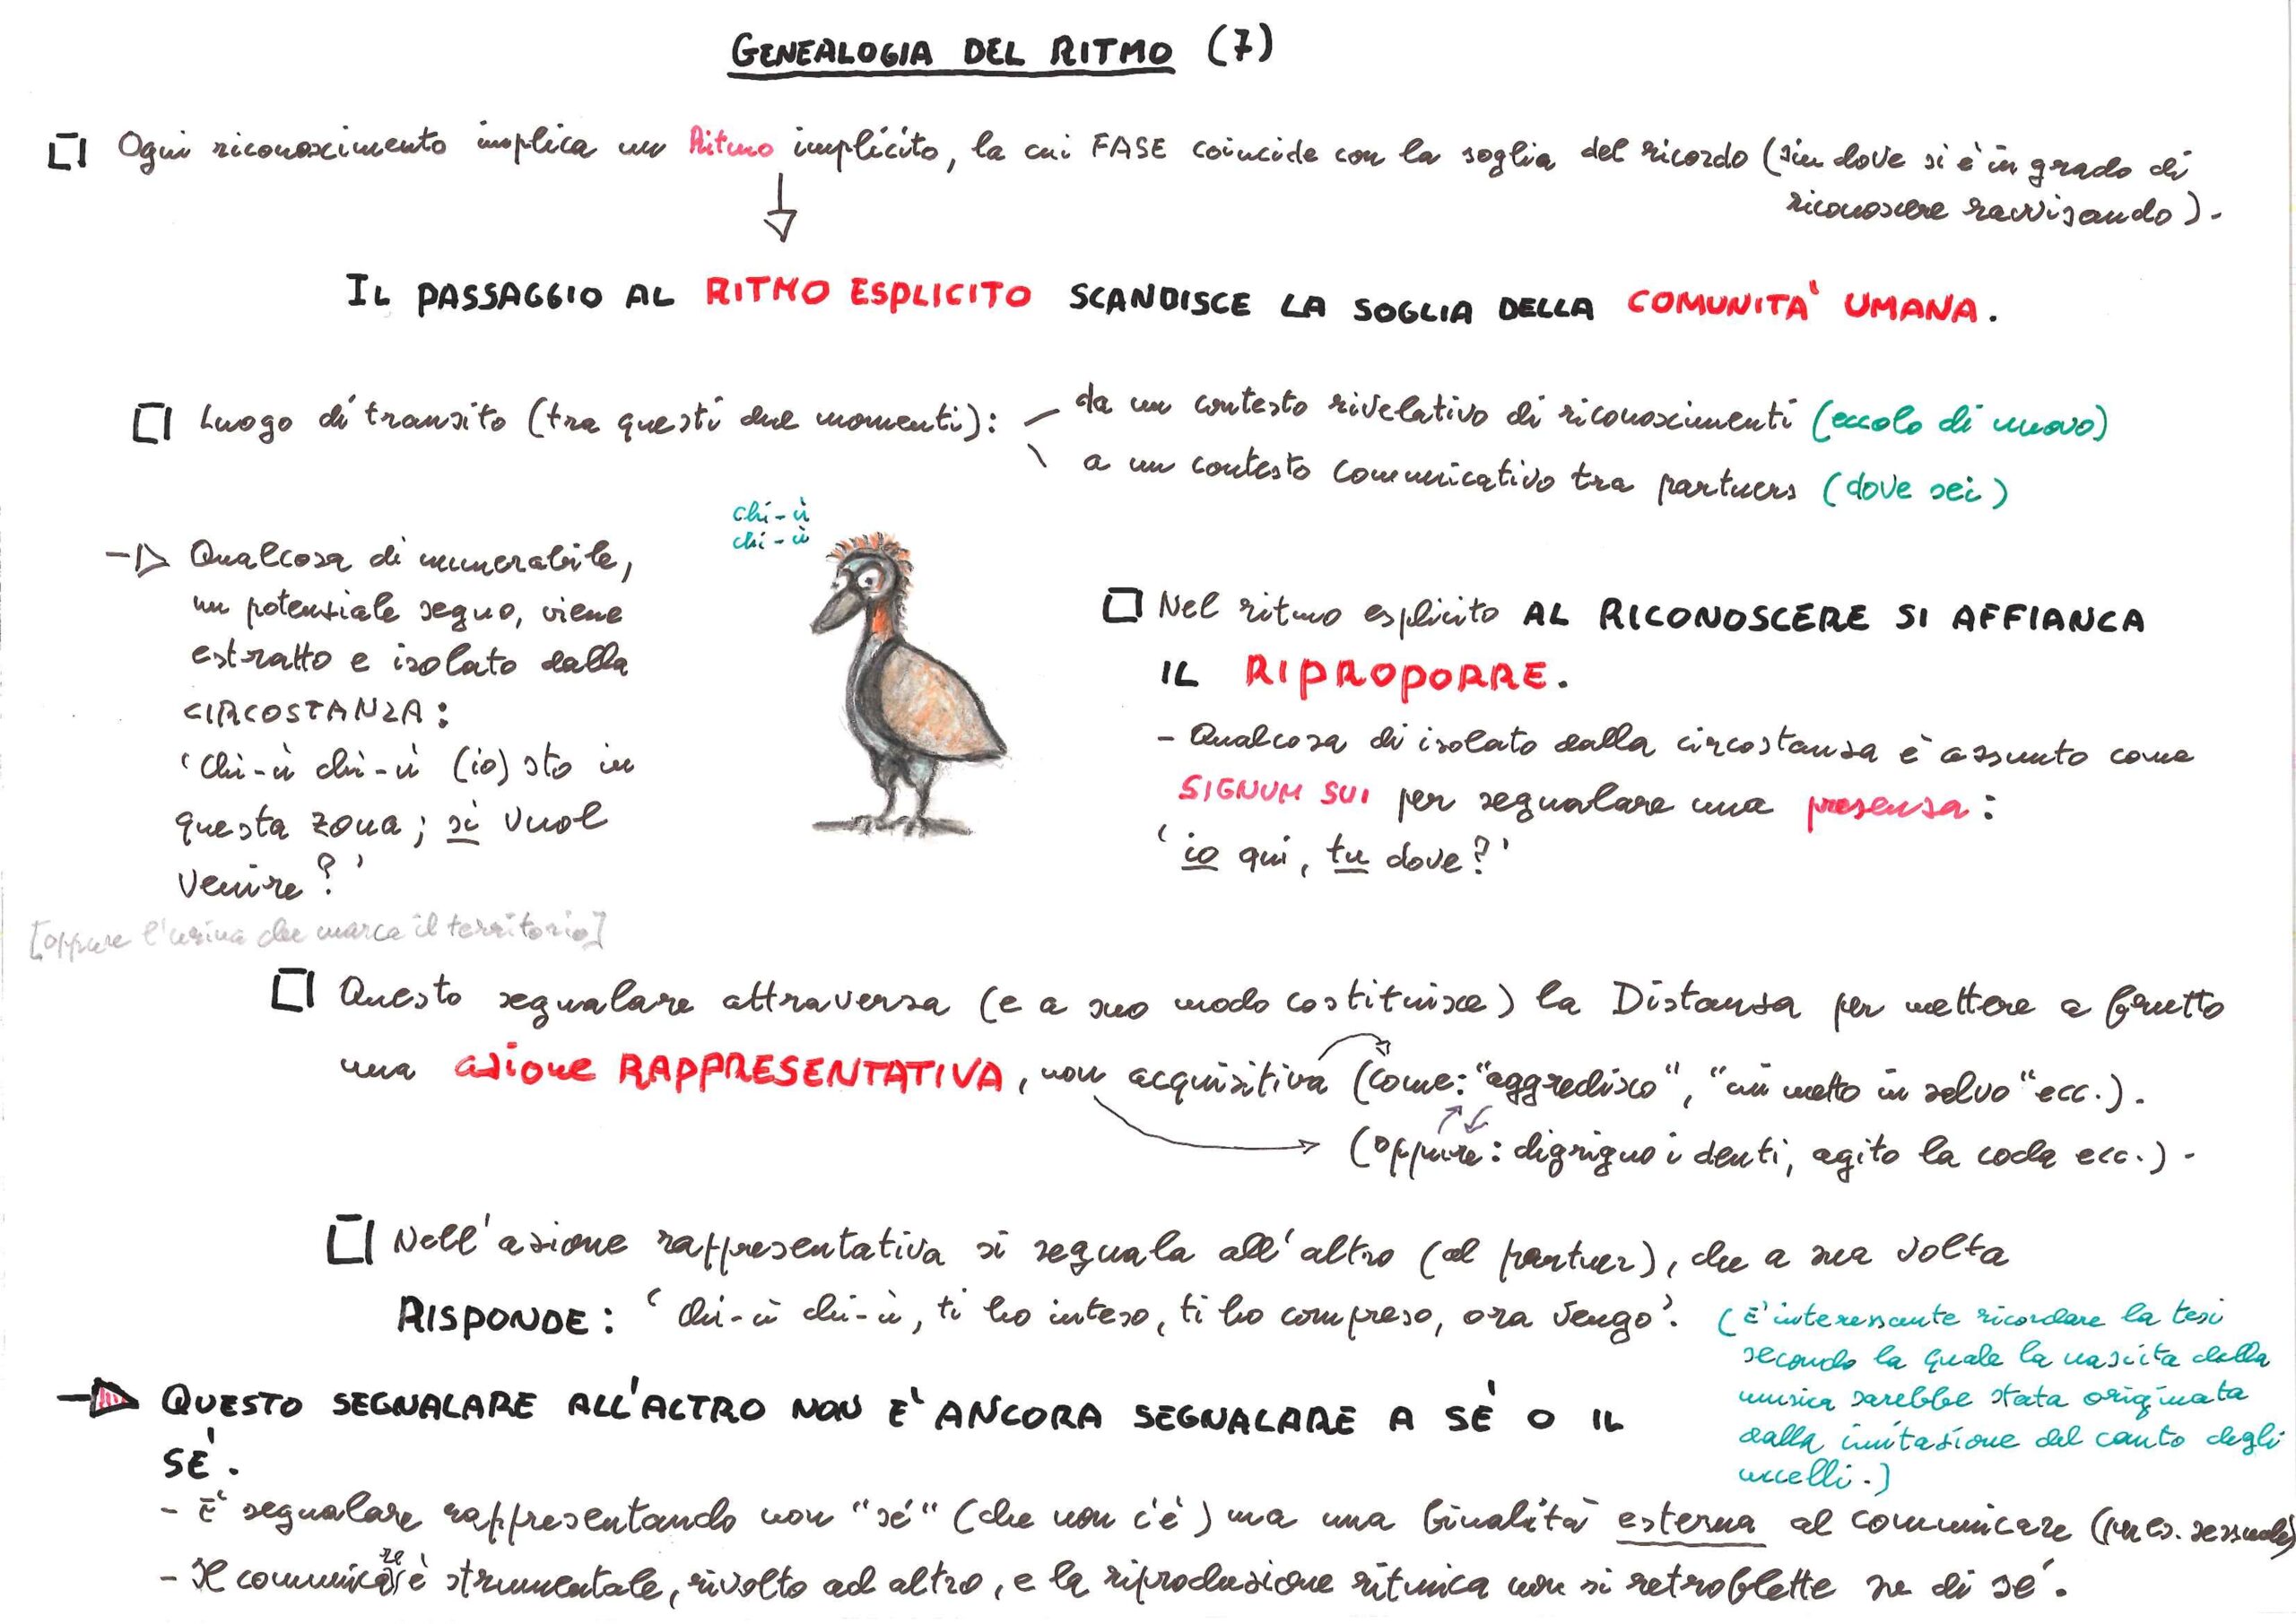 GENEALOGIA DEL RITMO (7)
Ogni riconoscimento implica un Ritmo implicito, la cui FASE coincide con la soglia del ricordo (sin dove si è in grado di
riconoscere ravvisando).
IL PASSAGGIO AL RITMO ESPLICITO SCANDISCE LA SOGLIA DELLA COMUNITA' UMANA.
Luogo di transito (tra questi due momenti): – da un contesto rivelativo di riconoscimenti (eccolo di nuovo)
a un contesto comunicativo tra partners (dove sei)
chi-ù
chi-ù
Qualcosa di numerabile,
un potenziale segno, viene
estratto e isolato dalla
CIRCOSTANZA:
'Chi-ù chi-ù (io) sto in
questa zona; si vuol
venire?'
[oppure l'urina che marca il territorio]
Nel ritmo esplicito AL RICONOSCERE SI AFFIANCA
IL RIPROPORRE.
- Qualcosa di isolato dalla circostanza è assunto come
SIGNUM SUI per segnalare una presenza:
'io qui, tu dove?'
Questo segnalare attraversa (e a suo modo costituisce) la Distanza per mettere a frutto
una azione RAPPRESENTATIVA, non acquisitiva (come: "aggredisco", "mi metto in salvo" ecc.).
(oppure: digrigno i denti, agito la coda ecc.).
Nell'azione rappresentativa si segnala all'altro (al partner), che a sua volta
RISPONDE: 'Chi-ù chi-ù, ti ho inteso, ti ho compreso, ora vengo'.
(E' interessante ricordare la tesi
secondo la quale la nascita della
musica sarebbe stata originata
dalla imitazione del canto degli
uccelli.)
QUESTO SEGNALARE ALL'ALTRO NON E' ANCORA SEGNALARE A SE' O IL
SE'.
- E' segnalare rappresentando non "sé" (che non c'è) ma una finalità esterna al comunicare (per es. sessuale)
- Il comunicare è strumentale, rivolto ad altro, e la riproduzione ritmica non si retroflette su di sé.